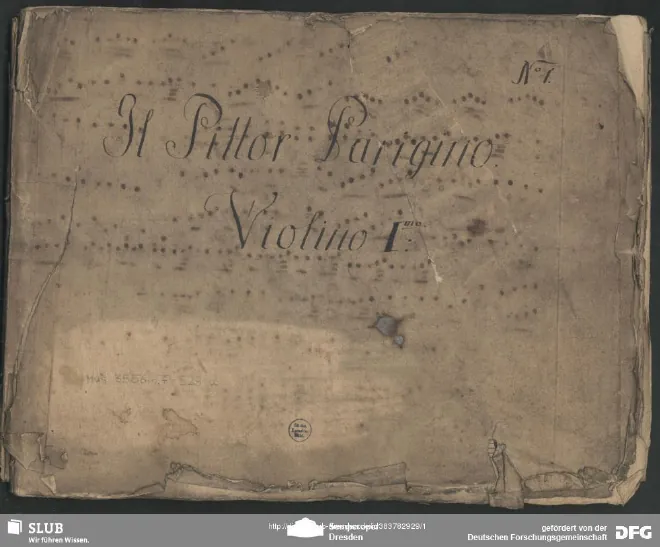 No. 1.
Il Pittor Parigino.
Violino I.mo
SLUB
Wir führen Wissen.
Dresden
gefördert von der
Deutschen Forschungsgemeinschaft
DFG